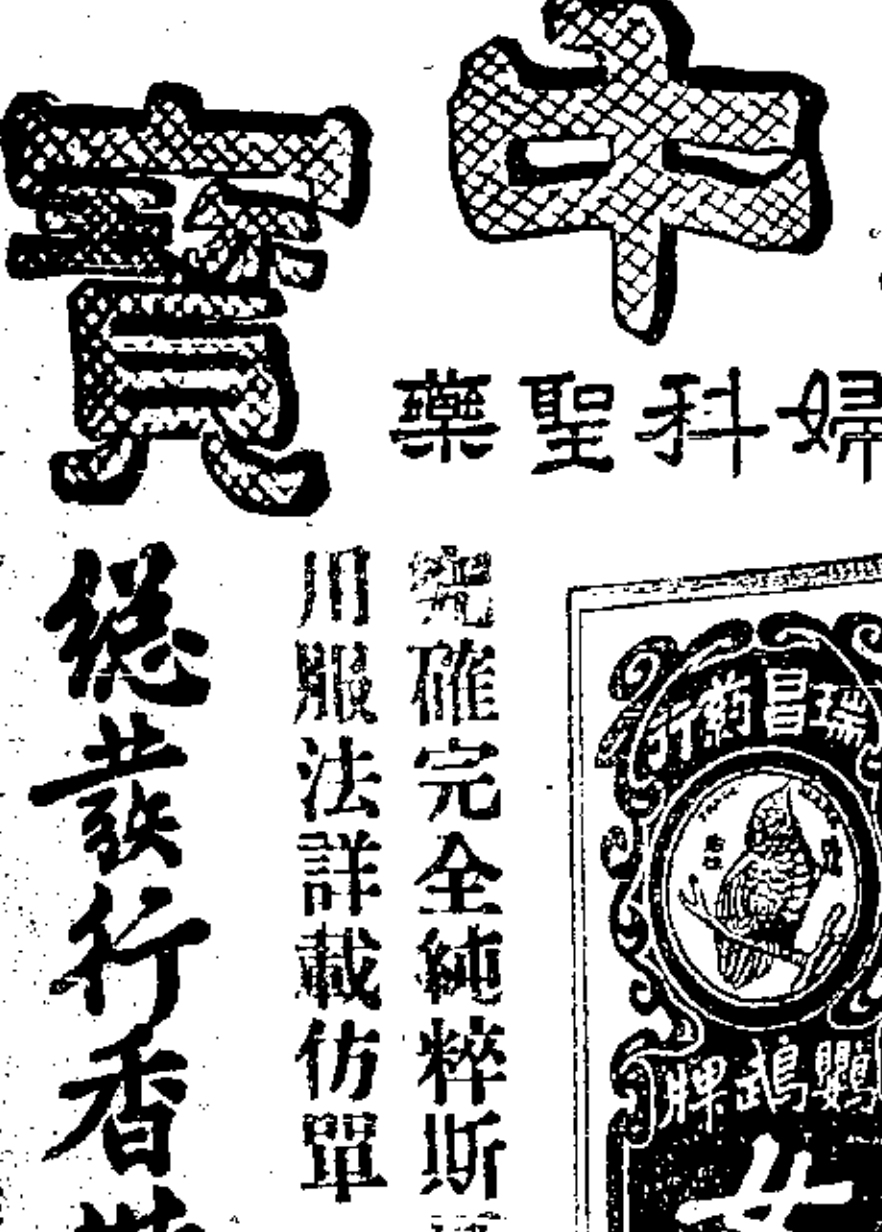 中寶
婦科聖藥
瑞昌药行
鸚鵡牌
女
究確完全純粹斯
用服法詳載仿單
總發行香